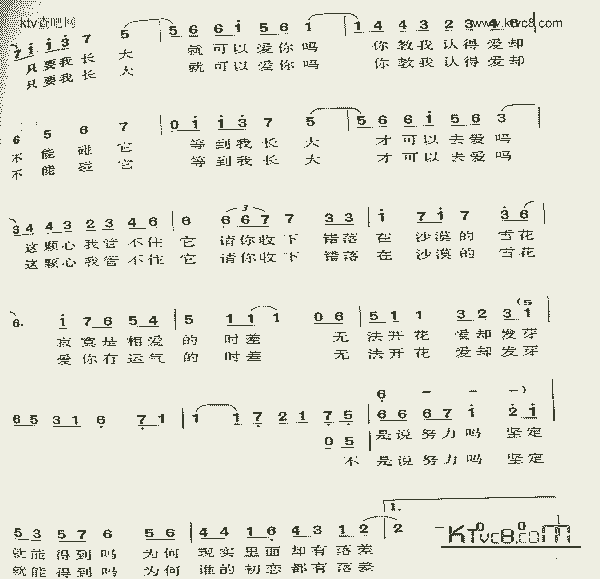 ktv酷吧网
www.ktvc8.com
7 1 1 3 7 5 | 5 6 6 1 5 6 1 | 1 4 4 3 2 3 4 6
只要我长大 就可以爱你吗 你教我认得爱却
只要我长大 就可以爱你吗 你教我认得爱却
6 5 6 7 | 0 1 1 3 7 5 | 5 6 6 1 5 6 3
不能碰它 等到我长大 才可以去爱吗
不能碰它 等到我长大 才可以去爱吗
3 4 4 3 2 3 4 6 | 6 6 6 7 7 3 3 | 1 7 1 7 3 6
这颗心我管不住它 请你收下 错落在沙漠的雪花
这颗心我管不住它 请你收下 错落在沙漠的雪花
6. 1 7 6 5 4 | 5 1 1 1 0 6 | 5 1 1 3 2 3 1 (5
寂寞是相爱的时差 无法开花 爱却发芽
爱你有运气的时差 无法开花 爱却发芽
6 5 3 1 6 7 1 | 1 1 7 2 1 7 5 | 6 6 6 7 1 2 1
6 - - -)
0 5
是说努力吗 坚定
不是说努力吗 坚定
1.
5 3 5 7 6 5 6 | 4 4 1 6 4 3 1 2 | 2 -
就能得到吗 为何现实里面却有落差
就能得到吗 为何谁的初恋都有落差
KTvc8.com